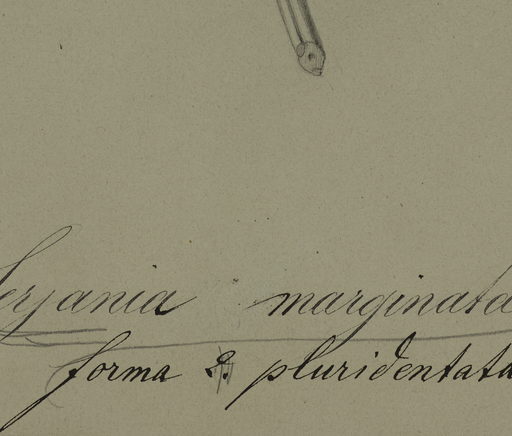 Serjania marginata
forma pluridentata